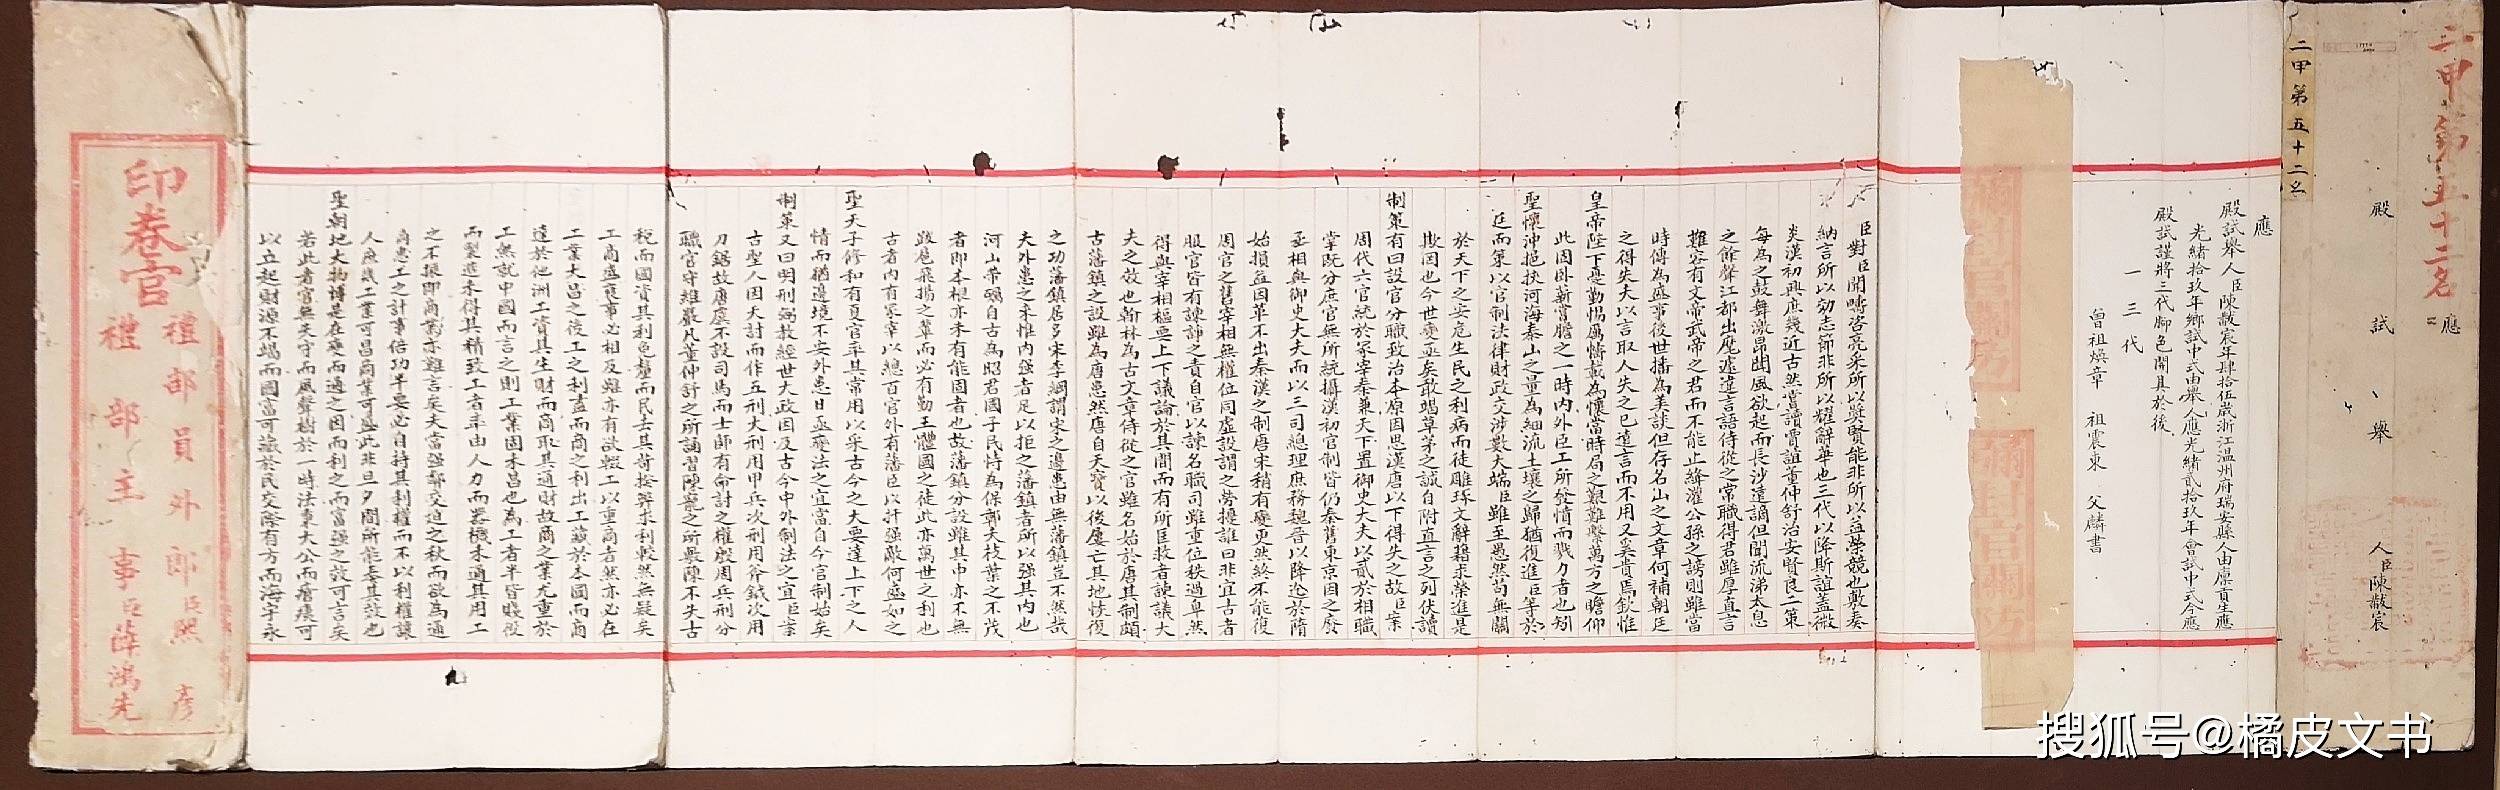 二甲第五十二名
應
殿試舉人臣陳黻宸
二甲第五十二名
應
殿試舉人臣陳黻宸年肆拾伍歲浙江溫州府瑞安縣人由廩貢生應
光緒拾玖年鄉試中式由舉人應光緒貳拾玖年會試中式今應
殿試謹將三代腳色開具於後
一三代
曾祖煥章 祖震東 父麟書
臣對臣聞疇咨亮采所以奬賢能非所以益榮競也敷奏
納言所以勁志節非所以耀辭華也三代以降斯誼蓋微
炎漢初興庶幾近古然嘗讀賈誼董仲舒治安賢良二策
每為之鼓舞激昂聞風欲起而長沙遠謫但聞流涕太息
之餘聲江都出麾遽違言語侍從之常職得君雖厚直言
難容有文帝武帝之君而不能止絳灌公孫之謗則雖當
時傳為盛事後世播為美談但存名山之文章何補朝廷
之得失夫以言取人失之已遠言而不用又奚貴焉欽惟
皇帝陛下憂勤惕厲幬載為懷當時局之艱難繫萬方之瞻仰
此固臥薪嘗膽之一時內外臣工所發憤而戮力者也矧
聖懷沖挹扶河海泰山之量為細流土壤之歸猶復進臣等於
廷而策以官制法律財政交涉數大端臣雖至愚然苟無關
於天下之安危生民之利病而徒雕琢文辭藉求榮進是
欺罔也今世變亟矣敢竭草茅之誠自附直言之列伏讀
制策有曰設官分職致治本原因思漢唐以下得失之故臣案
周代六官統於冢宰秦兼天下置御史大夫以貳於相職
掌既分庶官無所統攝漢初官制皆仍秦舊東京因之廢
丞相與御史大夫而以三司總理庶務魏晉以降迄於隋
始損益因革不出秦漢之制唐宋稍有變更然終不能復
周官之舊宰相無權位同虛設謂之勞擾誰曰非宜古者
服官皆有諫諍之責自官以諫名職司雖重位秩過卑然
得與宰相樞要上下議論於其間而有所匡救者諫議大
夫之效也翰林為古文章侍從之官雖名始於唐其制頗
古藩鎮之設雖為唐患然唐自天寶以後屢亡其地恢復
之功藩鎮居多宋李綱謂宋之邊患由無藩鎮豈不然哉
夫外患之來惟內強者足以拒之藩鎮者所以強其內也
河山帶礪自古為昭君國子民恃為保鄣夫枝葉之不茂
者即本根亦未有能固者也故藩鎮分設雖其中亦不無
跋扈飛揚之輩而必有勤王體國之徒此亦萬世之利也
古者內有冢宰以總百官外有藩臣以扞强敵何盛如之
聖天子修和有夏官率其常用以采古今之大要達上下之人
情而猶邊境不安外患日亟變法之宜當自今官制始矣
制策又曰明刑弼教經世大政因及古今中外制法之宜臣案
古聖人因天討而作五刑大刑用甲兵次刑用斧鉞次用
刀鋸故唐虞不設司馬而士師有命討之權殷周兵刑分
職官守維嚴凡董仲舒之所誦習陳寵之所最陳不失古
稅而國資其利色釐而民去其苛捨弊求利較然無疑矣
工商盛衰事必相及雖亦有欲輟工以重商者然亦必在
工業大昌之後工之利盡而商之利出工藏於本國而商
遠於他洲工資其生財而商取其通財故商之業尤重於
工無就中國而言之則工業固未昌也為工者半皆賤役
而製造未得其精致工者率由人力而器機未通其用工
之不振即商業亦難言矣夫當强鄰交迫之秋而欲為通
商惠工之計事倍功半要必自持其利權而不以利權讓
人庶幾工業可昌商業可盛此非旦夕間所能奏其效也
聖朝地大物博是在變而通之因而利之而富强之效可言矣
若此者官無失守而風聲樹於一時法秉大公而瘡痍可
以立起財源不竭而國富可藏於民交際有方而海宇永
印卷官
禮部員外郎臣熙彥
禮部主事臣薛鴻先
搜狐号@橘皮文书